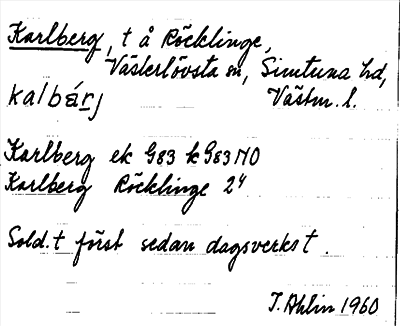 Karlberg, t å Röcklinge,
Västerlövsta sn, Simtuna hd,
kalbárj Västm. l.
Karlberg ek G83 k G83 NO
Karlberg Röcklinge 2⁴
Sold.t först sedan dagsverkst.
T. Ahlin 1960